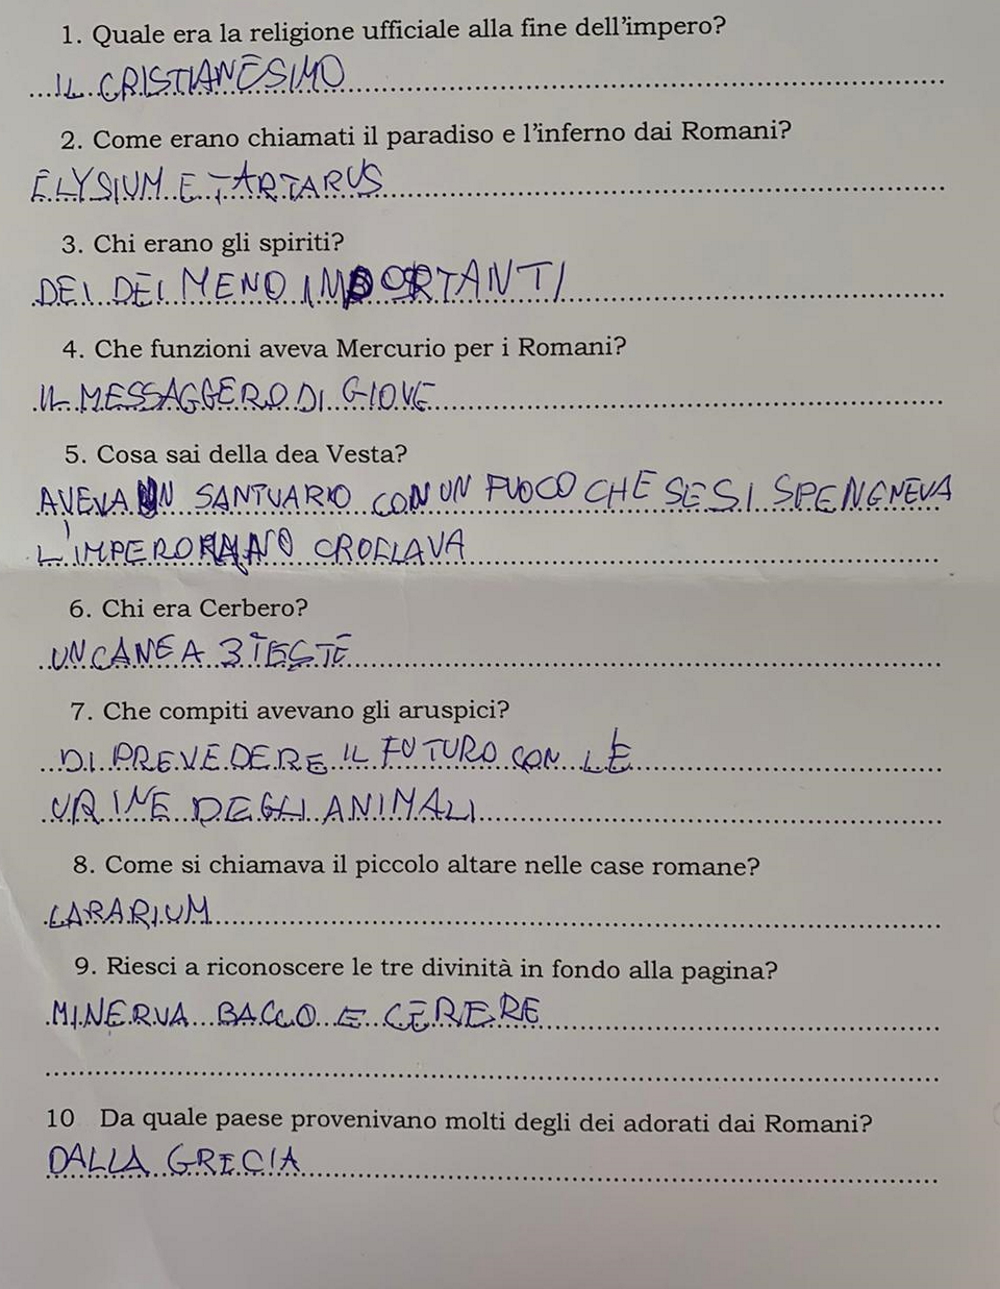 1. Quale era la religione ufficiale alla fine dell'impero?
IL CRISTIANESIMO
2. Come erano chiamati il paradiso e l'inferno dai Romani?
ELYSIUM E TARTARUS
3. Chi erano gli spiriti?
DEI DEI MENO IMPORTANTI
4. Che funzioni aveva Mercurio per i Romani?
IL MESSAGGERO DI GIOVE
5. Cosa sai della dea Vesta?
AVEVA UN SANTUARIO CON UN FUOCO CHE SE SI SPENGNEVA
L'IMPERO ROMANO CROLLAVA
6. Chi era Cerbero?
UN CANE A 3 TESTE
7. Che compiti avevano gli aruspici?
DI PREVEDERE IL FUTURO CON LE
URINE DEGLI ANIMALI
8. Come si chiamava il piccolo altare nelle case romane?
LARARIUM
9. Riesci a riconoscere le tre divinità in fondo alla pagina?
MINERVA BACCO E CERERE
10 Da quale paese provenivano molti degli dei adorati dai Romani?
DALLA GRECIA